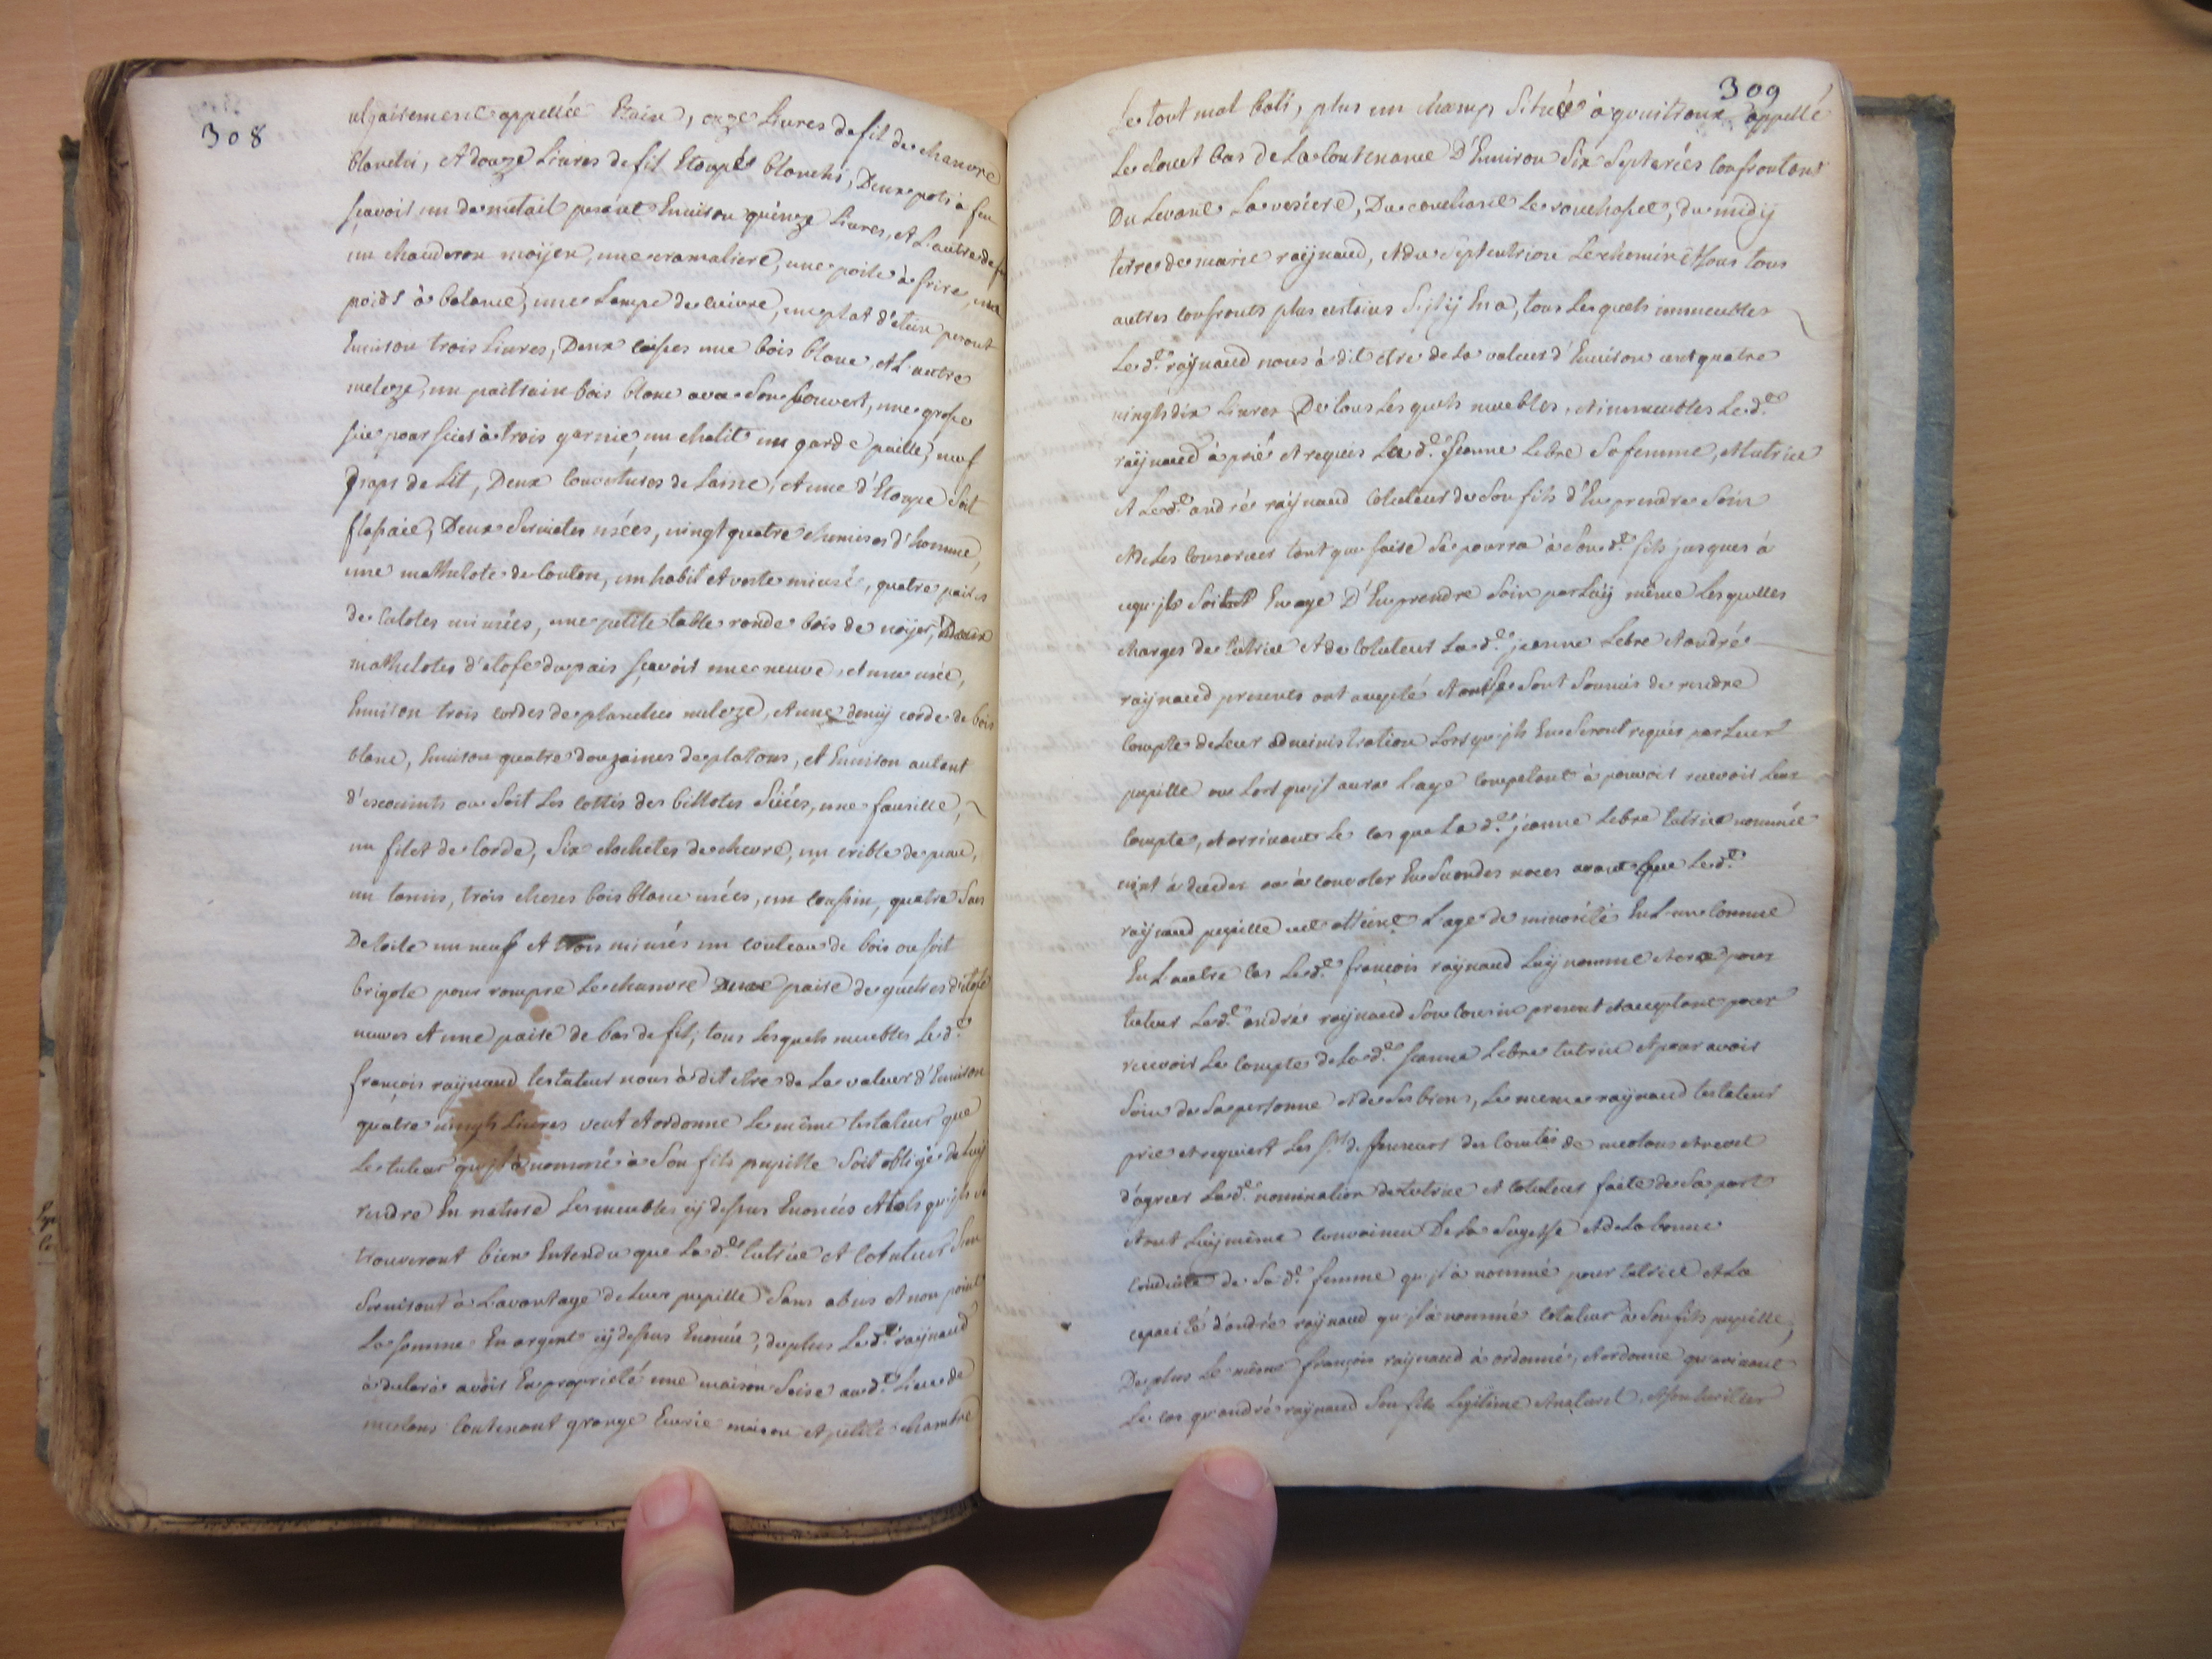 308
ulgairement appellée Etain, onze Livres de fil de chanvre
blanchi, et douze Livres de fil Etoupes blanchi, Deux pots à feu
sçavoir un de metail pesant Environ quinze Livres, et L'autre de fer
un chauderon moÿen, une cramaliere, une poile à frire, un
poids à balance, une Lampe de cuivre, un plat d'etain pesant
Environ trois Livres, Deux caisses une bois blanc et L'autre
meleze, un paitrain bois blanc avec Son couvert, une grosse
sie pour sier à trois garnie, un chalit un garde paille, neuf
Draps de Lit, Deux Couvertures de Laine, et une d'Etoupe Soit
flassaie, Deux Serviettes usées, vingt quatre chemises d'homme,
une mathelote de Couton, un habit et veste mi usés, quatre paires
de Culotes mi usées, une petite table ronde bois de noÿer, Deux
mathelotes d'etofe du païs sçavoir une neuve et une usée,
Environ trois cordes de planches meleze, et une demÿ corde de bois
blanc, Environ quatre douzaines de platons, et Environ autant
d'escouints ou Soit Les cottés des billotes Siées, une faucille,
un filet de Corde, Six clochetes de chevre, un crible de peau,
un tamis, trois cheses bois blanc usées, un Coussin, quatre Sacs
De toile un neuf et trois mi usés un couteau de bois ou soit
brigole pour rompre Le chanvre Deux paire de guetres d'etofe
neuves et une paire de bas de fil; tous Lesquels meubles Le d.t
françois raÿnaud testateur nous à dit etre de La valeur d'Environ
quatre vingts Livres veut et ordonne Le même testateur que
Le tuteur qu'jl à nommé à Son fils pupille Soit obligé de Luÿ
rendre En nature Les meubles cÿ dessus Enoncés et tels qu'jls se
trouveront bien Entendu que La d.te tutrice et Cotuteur S'en
Serviront à L'avantage de Leur pupille Sans abus et non point
La somme En argent cÿ dessus Enoncée, de plus Le d.t raÿnaud
à declaré avoir En proprieté une maison Seise au d.t Lieu de
meolans Contenant grange Eurie maison et petite chambre
309
Le tout mal bati, plus un champ Situé à gouitroux appellé
Le clouet bas de La Contenance D'Environ Six Septerées Confrontant
Du Levant La vesiere, Du couchant Le rouchasse, du midÿ
terre de marie raÿnaud, et du Septentrion Le chemin et Sous tous
autres confronts plus certains Sijlÿ En a, tous Lesquels immeubles
Le d.t raÿnaud nous à dit etre de La valeur d'Environ cent quatre
vingts dix Livres De tous Lesquels meubles, et immeubles Le d.t
raÿnaud à prié et requis La d.e Jeanne Lebre Sa femme, et tutrice
et Le d.t andré raÿnaud Cotuteur de Son fils d'En prendre Soin
et de Les Conserver tant que faire Se pourra à Son d.t fils jusques à
ce qu'jls Soit En age D'En prendre Soin par Luÿ même Lesquelles
charges de tutrice et de Cotuteur La d.e jeanne Lebre et andré
raÿnaud presents ont accepté et Se Sont Soumis de rendre
Compte de Leur administration Lors qu'jls En Seront requis par Leur
pupille ou Lors qu'jl aura L'age competant à pouvoir recevoir Leur
Compte, et arrivant Le Cas que La d.e jeanne Lebre tutrice nommée
vint à deceder ou à convoler En Secondes noces avant que Le d.t
raÿnaud pupille aet atteint L'age de minorité En L'un Comme
En L'autre Cas Le d.t françois raÿnaud Luÿ nomme et cree pour
tuteur Le d.t andré raÿnaud Son Cousin present et acceptant pour
recevoir Le Compte de La d.e Jeanne Lebre tutrice et pour avoir
Soin de Sa personne et de Ses biens, Le meme raÿnaud testateur
prie et requiert Les S.rs d. Juseurs des Comtés de meolans et revel
d'agreer La d.e nomination de tutrice et Cotuteur faite de Sa part
etant Luÿ même Convaincu De La Sagesse et de La bonne
Conduite de Sa d.e femme qu'jl à nommé pour tutrice et La
capacité d'andré raÿnaud qu'jl à nommé Cotuteur à Son fils pupille,
De plus Le même françois raÿnaud à ordonné, et ordonne qu'arrivant
Le Cas qu'andré raÿnaud Son fils Legitime et naturel et Son heritier